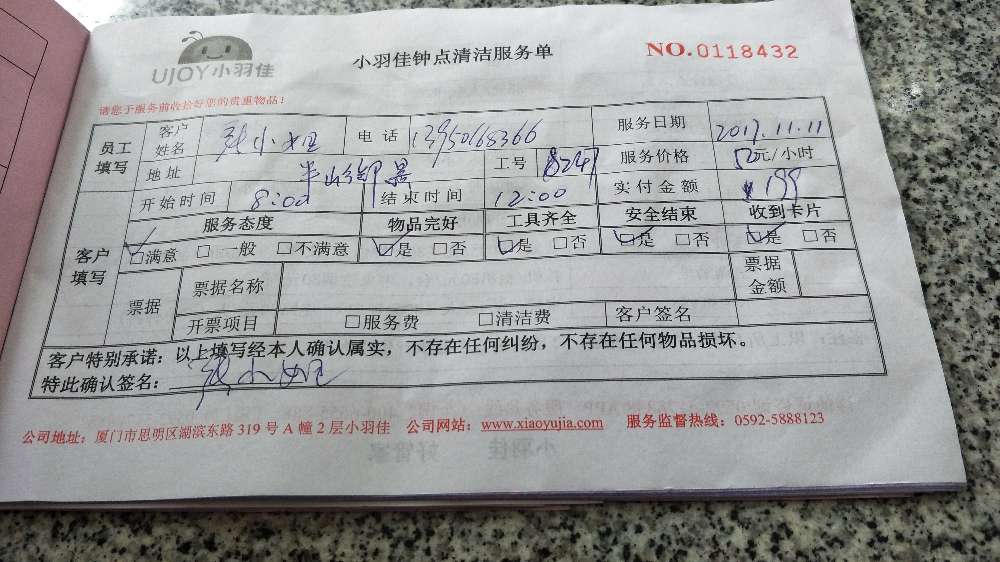 UJOY小羽佳
小羽佳钟点清洁服务单
NO.0118432
请您于服务前收拾好您的贵重物品!
员工填写 客户姓名 张小姐 电话 13950168366 服务日期 2017.11.11
地址 半山御景 工号 8247 服务价格 元/小时
开始时间 8:00 结束时间 12:00 实付金额 ¥199
客户填写 服务态度 物品完好 工具齐全 安全结束 收到卡片
☑满意 □一般 □不满意 ☑是 □否 ☑是 □否 ☑是 □否 ☑是 □否
票据 票据名称 票据金额
开票项目 □服务费 □清洁费 客户签名
客户特别承诺:以上填写经本人确认属实,不存在任何纠纷,不存在任何物品损坏。
特此确认签名: 张小姐
公司地址:厦门市思明区湖滨东路319号A幢2层小羽佳 公司网站:www.xiaoyujia.com 服务监督热线:0592-5888123